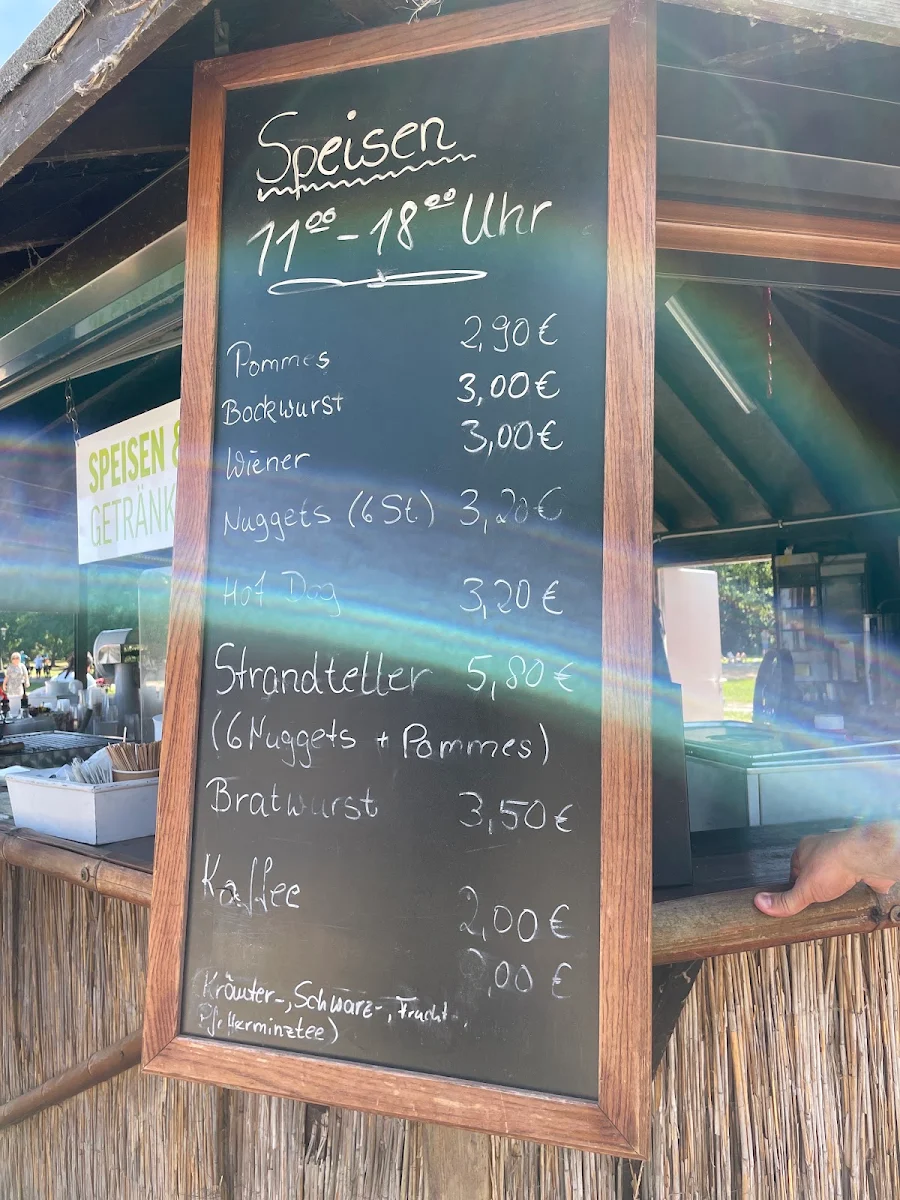 Speisen
11⁰⁰ - 18⁰⁰ Uhr
Pommes 2,90 €
Bockwurst 3,00 €
Wiener 3,00 €
Nuggets (6 St.) 3,20 €
Hot Dog 3,20 €
Strandteller 5,80 €
(6 Nuggets + Pommes)
Bratwurst 3,50 €
Kaffee 2,00 €
,00 €
Kräuter-, Schwarz-, Frucht-,
Pfefferminztee)
SPEISEN &
GETRÄNK